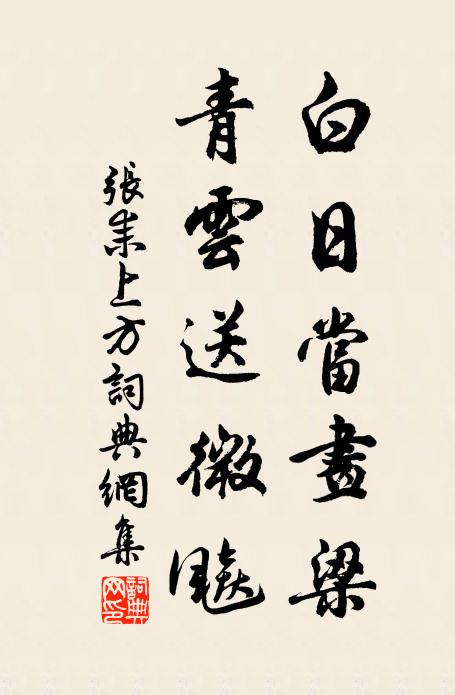 白日當畫梁
青雲送微飈
張耒上方詞典網集
詞典網印